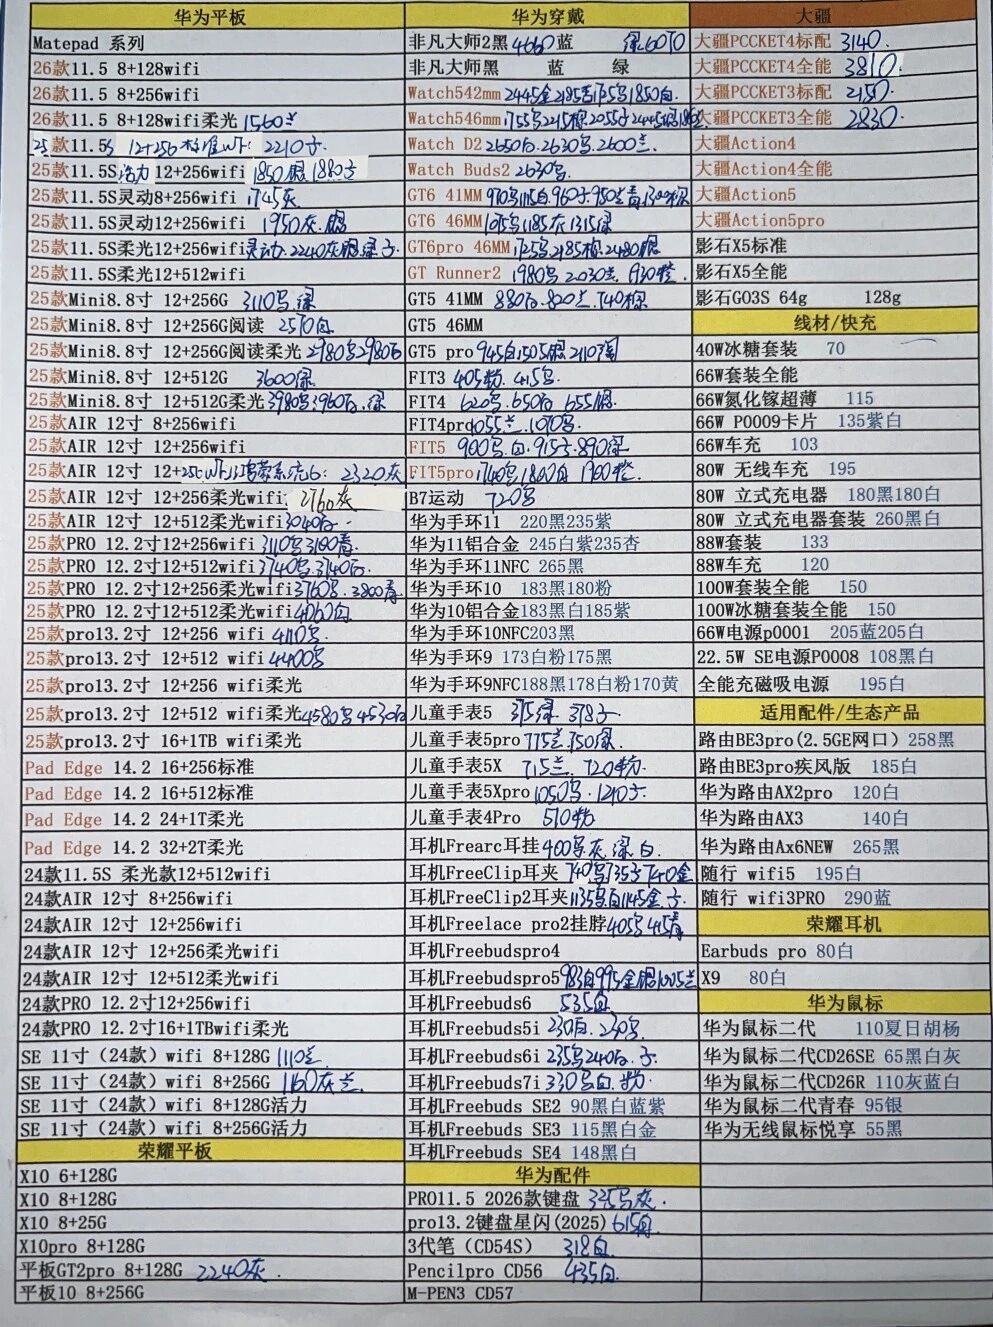 华为平板
Matepad 系列
26款11.5 8+128wifi
26款11.5 8+256wifi
26款11.5 8+128wifi柔光 1560兰
25款11.5S 12+256标准wifi: 2210子
25款11.5S活力 12+256wifi 1850银 1880子
25款11.5S灵动8+256wifi 1745灰
25款11.5S灵动12+256wifi 1950灰.银
25款11.5S柔光12+256wifi灵动.2240灰.银.绿.子.
25款11.5S柔光12+512wifi
25款Mini8.8寸 12+256G 3110黑.绿
25款Mini8.8寸 12+256G阅读 2570白
25款Mini8.8寸 12+256G阅读柔光 2980黑2980白
25款Mini8.8寸 12+512G 3600绿
25款Mini8.8寸 12+512G柔光3980黑3960白.绿
25款AIR 12寸 8+256wifi
25款AIR 12寸 12+256wifi
25款AIR 12寸 12+256wifi鸿蒙系统6: 2320灰
25款AIR 12寸 12+256柔光wifi: 2760灰
25款AIR 12寸 12+512柔光wifi3040白.
25款PRO 12.2寸12+256wifi 3110黑3180青
25款PRO 12.2寸12+512wifi 3740黑.3740白.
25款PRO 12.2寸12+256柔光wifi3760黑.3800青
25款PRO 12.2寸12+512柔光wifi4060白
25款pro13.2寸 12+256 wifi 4110黑
25款pro13.2寸 12+512 wifi 4400黑
25款pro13.2寸 12+256 wifi柔光
25款pro13.2寸 12+512 wifi柔光4580黑4530白
25款pro13.2寸 16+1TB wifi柔光
Pad Edge 14.2 16+256标准
Pad Edge 14.2 16+512标准
Pad Edge 14.2 24+1T柔光
Pad Edge 14.2 32+2T柔光
24款11.5S 柔光款12+512wifi
24款AIR 12寸 8+256wifi
24款AIR 12寸 12+256wifi
24款AIR 12寸 12+256柔光wifi
24款AIR 12寸 12+512柔光wifi
24款PRO 12.2寸12+256wifi
24款PRO 12.2寸16+1TBwifi柔光
SE 11寸（24款）wifi 8+128G 1110兰
SE 11寸（24款）wifi 8+256G 1160灰兰
SE 11寸（24款）wifi 8+128G活力
SE 11寸（24款）wifi 8+256G活力
荣耀平板
X10 6+128G
X10 8+128G
X10 8+25G
X10pro 8+128G
平板GT2pro 8+128G 2240灰.
平板10 8+256G
华为穿戴
非凡大师2黑4660蓝 绿6070
非凡大师黑 蓝 绿
Watch542mm 2445金2185青1725黑1850白
Watch546mm1755黑2215棕2055子2445银
Watch D2 2650白.2630黑.2600兰.
Watch Buds2 2630黑.
GT6 41MM 970黑1115白.960子.950兰青.1300棕
GT6 46MM 1075黑1185灰1315绿
GT6pro 46MM 1725黑.2185棕2480银
GT Runner2 1980黑.2030兰.1930橙.
GT5 41MM 880白.820兰.740棕
GT5 46MM
GT5 pro 945白1505银2110陶
FIT3 405粉.415黑.
FIT4 620黑.650白 655银.
FIT4pro1055兰.1070黑.
FIT5 900黑.白.915子.890绿
FIT5pro1740黑1820白 1700橙.
B7运动 720黑
华为手环11 220黑235紫
华为11铝合金 245白紫235杏
华为手环11NFC 265黑
华为手环10 183黑180粉
华为10铝合金183黑白185紫
华为手环10NFC203黑
华为手环9 173白粉175黑
华为手环9NFC188黑178白粉170黄
儿童手表5 375绿 378子
儿童手表5pro 775兰.750绿.
儿童手表5X 715兰 720粉.
儿童手表5Xpro1050黑.1210子.
儿童手表4Pro 510粉
耳机Frearc耳挂400黑灰 绿白.
耳机FreeClip耳夹 740黑735子740金
耳机FreeClip2耳夹1135黑白1145金.子.
耳机Freelace pro2挂脖405黑415青
耳机Freebudspro4
耳机Freebudspro5983白995金银1005兰
耳机Freebuds6 535白
耳机Freebuds5i 230白.230黑.
耳机Freebuds6i 235黑240白.子.
耳机Freebuds7i 330黑白.粉.
耳机Freebuds SE2 90黑白蓝紫
耳机Freebuds SE3 115黑白金
耳机Freebuds SE4 148黑白
华为配件
PRO11.5 2026款键盘 335黑灰.
pro13.2键盘星闪(2025)615白
3代笔（CD54S） 318白
Pencilpro CD56 435白.
M-PEN3 CD57
大疆
大疆PCCKET4标配 3140.
大疆PCCKET4全能 3810.
大疆PCCKET3标配 2150.
大疆PCCKET3全能 2830.
大疆Action4
大疆Action4全能
大疆Action5
大疆Action5pro
影石X5标准
影石X5全能
影石GO3S 64g 128g
线材/快充
40W冰糖套装 70
66W套装全能
66W氮化镓超薄 115
66W P0009卡片 135紫白
66W车充 103
80W 无线车充 195
80W 立式充电器 180黑180白
80W 立式充电器套装 260黑白
88W套装 133
88W车充 120
100W套装全能 150
100W冰糖套装全能 150
66W电源p0001 205蓝205白
22.5W SE电源P0008 108黑白
全能充磁吸电源 195白
适用配件/生态产品
路由BE3pro(2.5GE网口）258黑
路由BE3pro疾风版 185白
华为路由AX2pro 120白
华为路由AX3 140白
华为路由Ax6NEW 265黑
随行 wifi5 195白
随行 wifi3PRO 290蓝
荣耀耳机
Earbuds pro 80白
X9 80白
华为鼠标
华为鼠标二代 110夏日胡杨
华为鼠标二代CD26SE 65黑白灰
华为鼠标二代CD26R 110灰蓝白
华为鼠标二代青春 95银
华为无线鼠标悦享 55黑